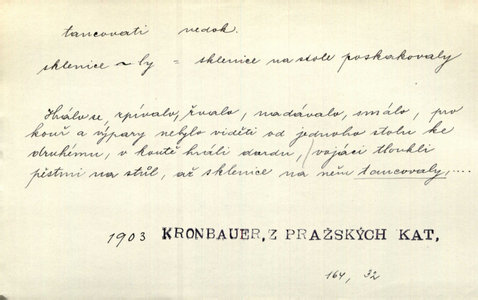 tancovati nedok.
sklenice ~ly = sklenice na stole poskakovaly
Hrálo se, zpívalo, řvalo, nadávalo, smálo, pro
kouř a výpary nebylo viděti od jednoho stolu ke
druhému, v koutě hráli dardu, vojáci tloukli
pěstmi na stůl, až sklenice na něm tancovaly, ....
1903 KRONBAUER, Z PRAŽSKÝCH KAT,
164, 32